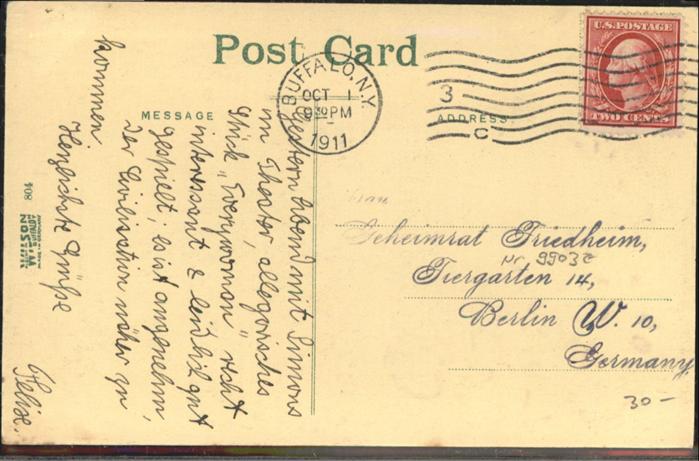 Post Card
MESSAGE
ADDRESS.
BUFFALO, N.Y.
OCT 1
9 30 PM
1911
3
C
U.S. POSTAGE
TWO CENTS
Gestern Abend mit Simons
im Theater, allegorisches
Stück „Everywoman" recht
interessant & leidlich gut
gespielt; ist angenehm,
der Civilisation näher zu
kommen.
Herzlichste Grüße
Felix.
Frau
Geheimrat Friedheim,
Nr. 9903z
Tiergarten 14,
Berlin W. 10,
Germany
30 —
804
WILSON
BUFFALO
MADE IN GERMANY